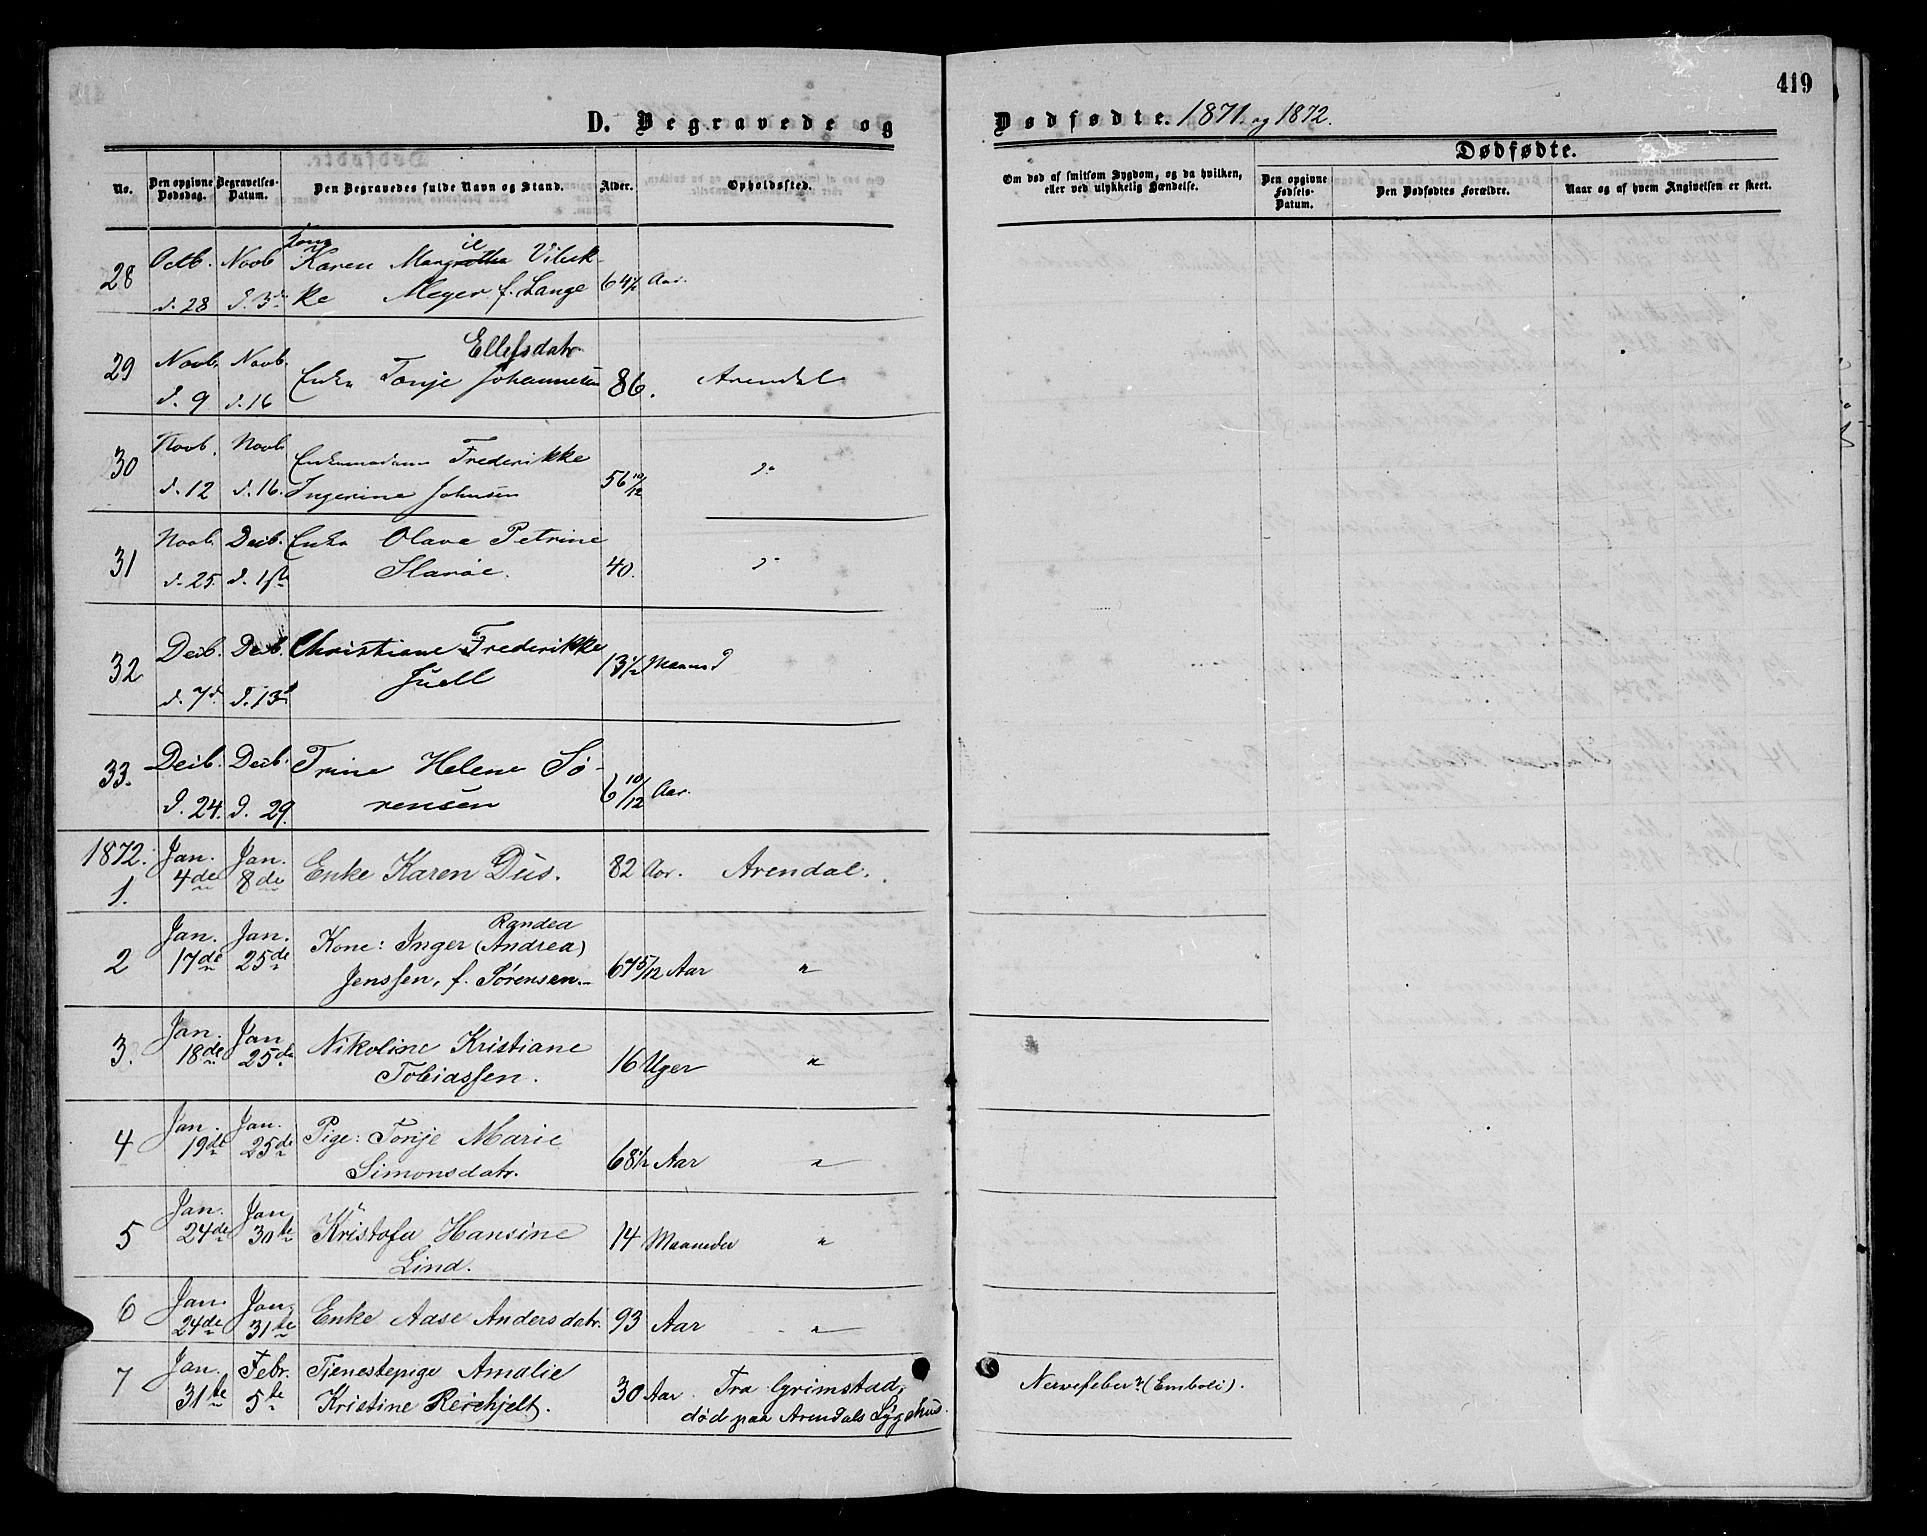 419
D. Begravede og Dødfødte. 1871 og 1872.
No.
Den opgivne Dødsdag.
Begravelses-Datum.
Den Begravedes fulde Navn og Stand.
Alder.
Opholdssted.
Om død af smitsom Sygdom, og da hvilken, eller ved ulykkelig Hændelse.
Dødfødte.
Den opgivne Fødsels-Datum.
Den Dødfødtes Forældre.
Naar og af hvem Angivelsen er skeet.
28 Octb. Novb Karen Margrethe Vibek-
d. 28 d. 3die ke Meyer f. Lange 64½ Aar.
Ellefsdatr.
29 Novb. Novb. Enke Tonje Johannesen 86. Arendal
d. 9 d. 16
30 Novb. Novb Enkemadam Frederikke
d. 12 d. 16. Ingerine Johnsen 56 10/12 do
31 Novb. Decb. Enke Olava Petrine
d. 25. d. 1ste Slaröe. 40. do
32 Decb. Decb. Christiane Frederikke
d. 7d. d. 13d Juell 13½ Maaned
33. Decb. Decb. Trine Helene Sö-
d. 24. d. 29. rensen 6 10/12 Aar.
1872. Jan. Jan.
1. 4de 8de Enke Karen Dús. 82 Aar. Arendal.
Randea
2 Jan. Jan. Kone: Inger (Andrea)
17de 25de Jenssen, f. Sørensen. 67 5/12 Aar "
3. Jan. Jan. Nikoline Kristiane
18de 25de Tobiassen. 16 Uger "
4 Jan. Jan. Pige: Tonje Marie
19de 25de Simonsdatr. 68½ Aar "
5 Jan. Jan. Kristofa Hansine
24de 30te Lind. 14 Maaneder "
6 Jan. Jan. Enke Aase Andersdatr. 93 Aar "
24de 31te
7 Jan. Febr. Tjenestepige Amalie
31te 5te Kristine Reichjelt. 30 Aar. Fra Grimstad,
døde paa Arendals Sygehus. Nervefeber (Emboli).